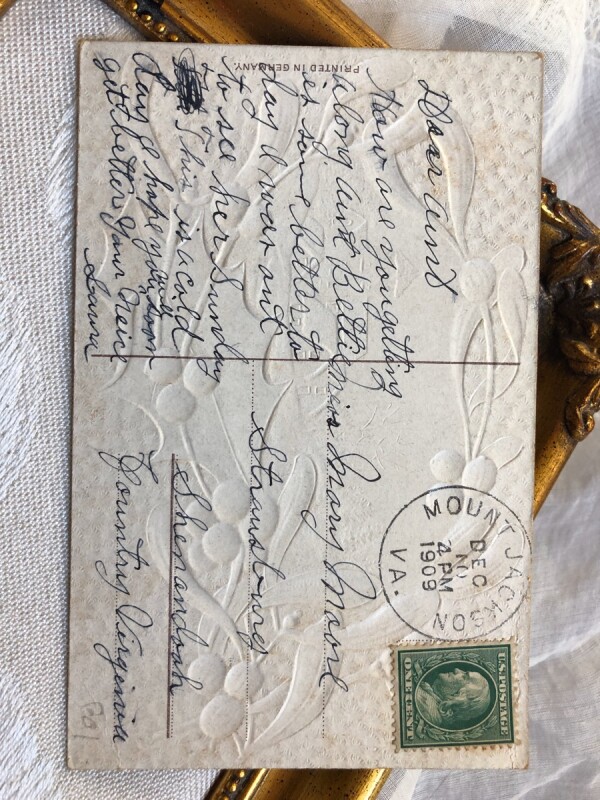 PRINTED IN GERMANY.
Dear aunt
How are you getting
along aunt Bettie
is some better to
day I was out
to see her Sunday
This is a cold
day I hope you will soon
git better your Neice
Miss. Mary Moore
Strausburg
Shenandoah
Country Virginia
MOUNT JACKSON
DEC
4 PM
1909
VA.
U.S. POSTAGE
ONE CENT